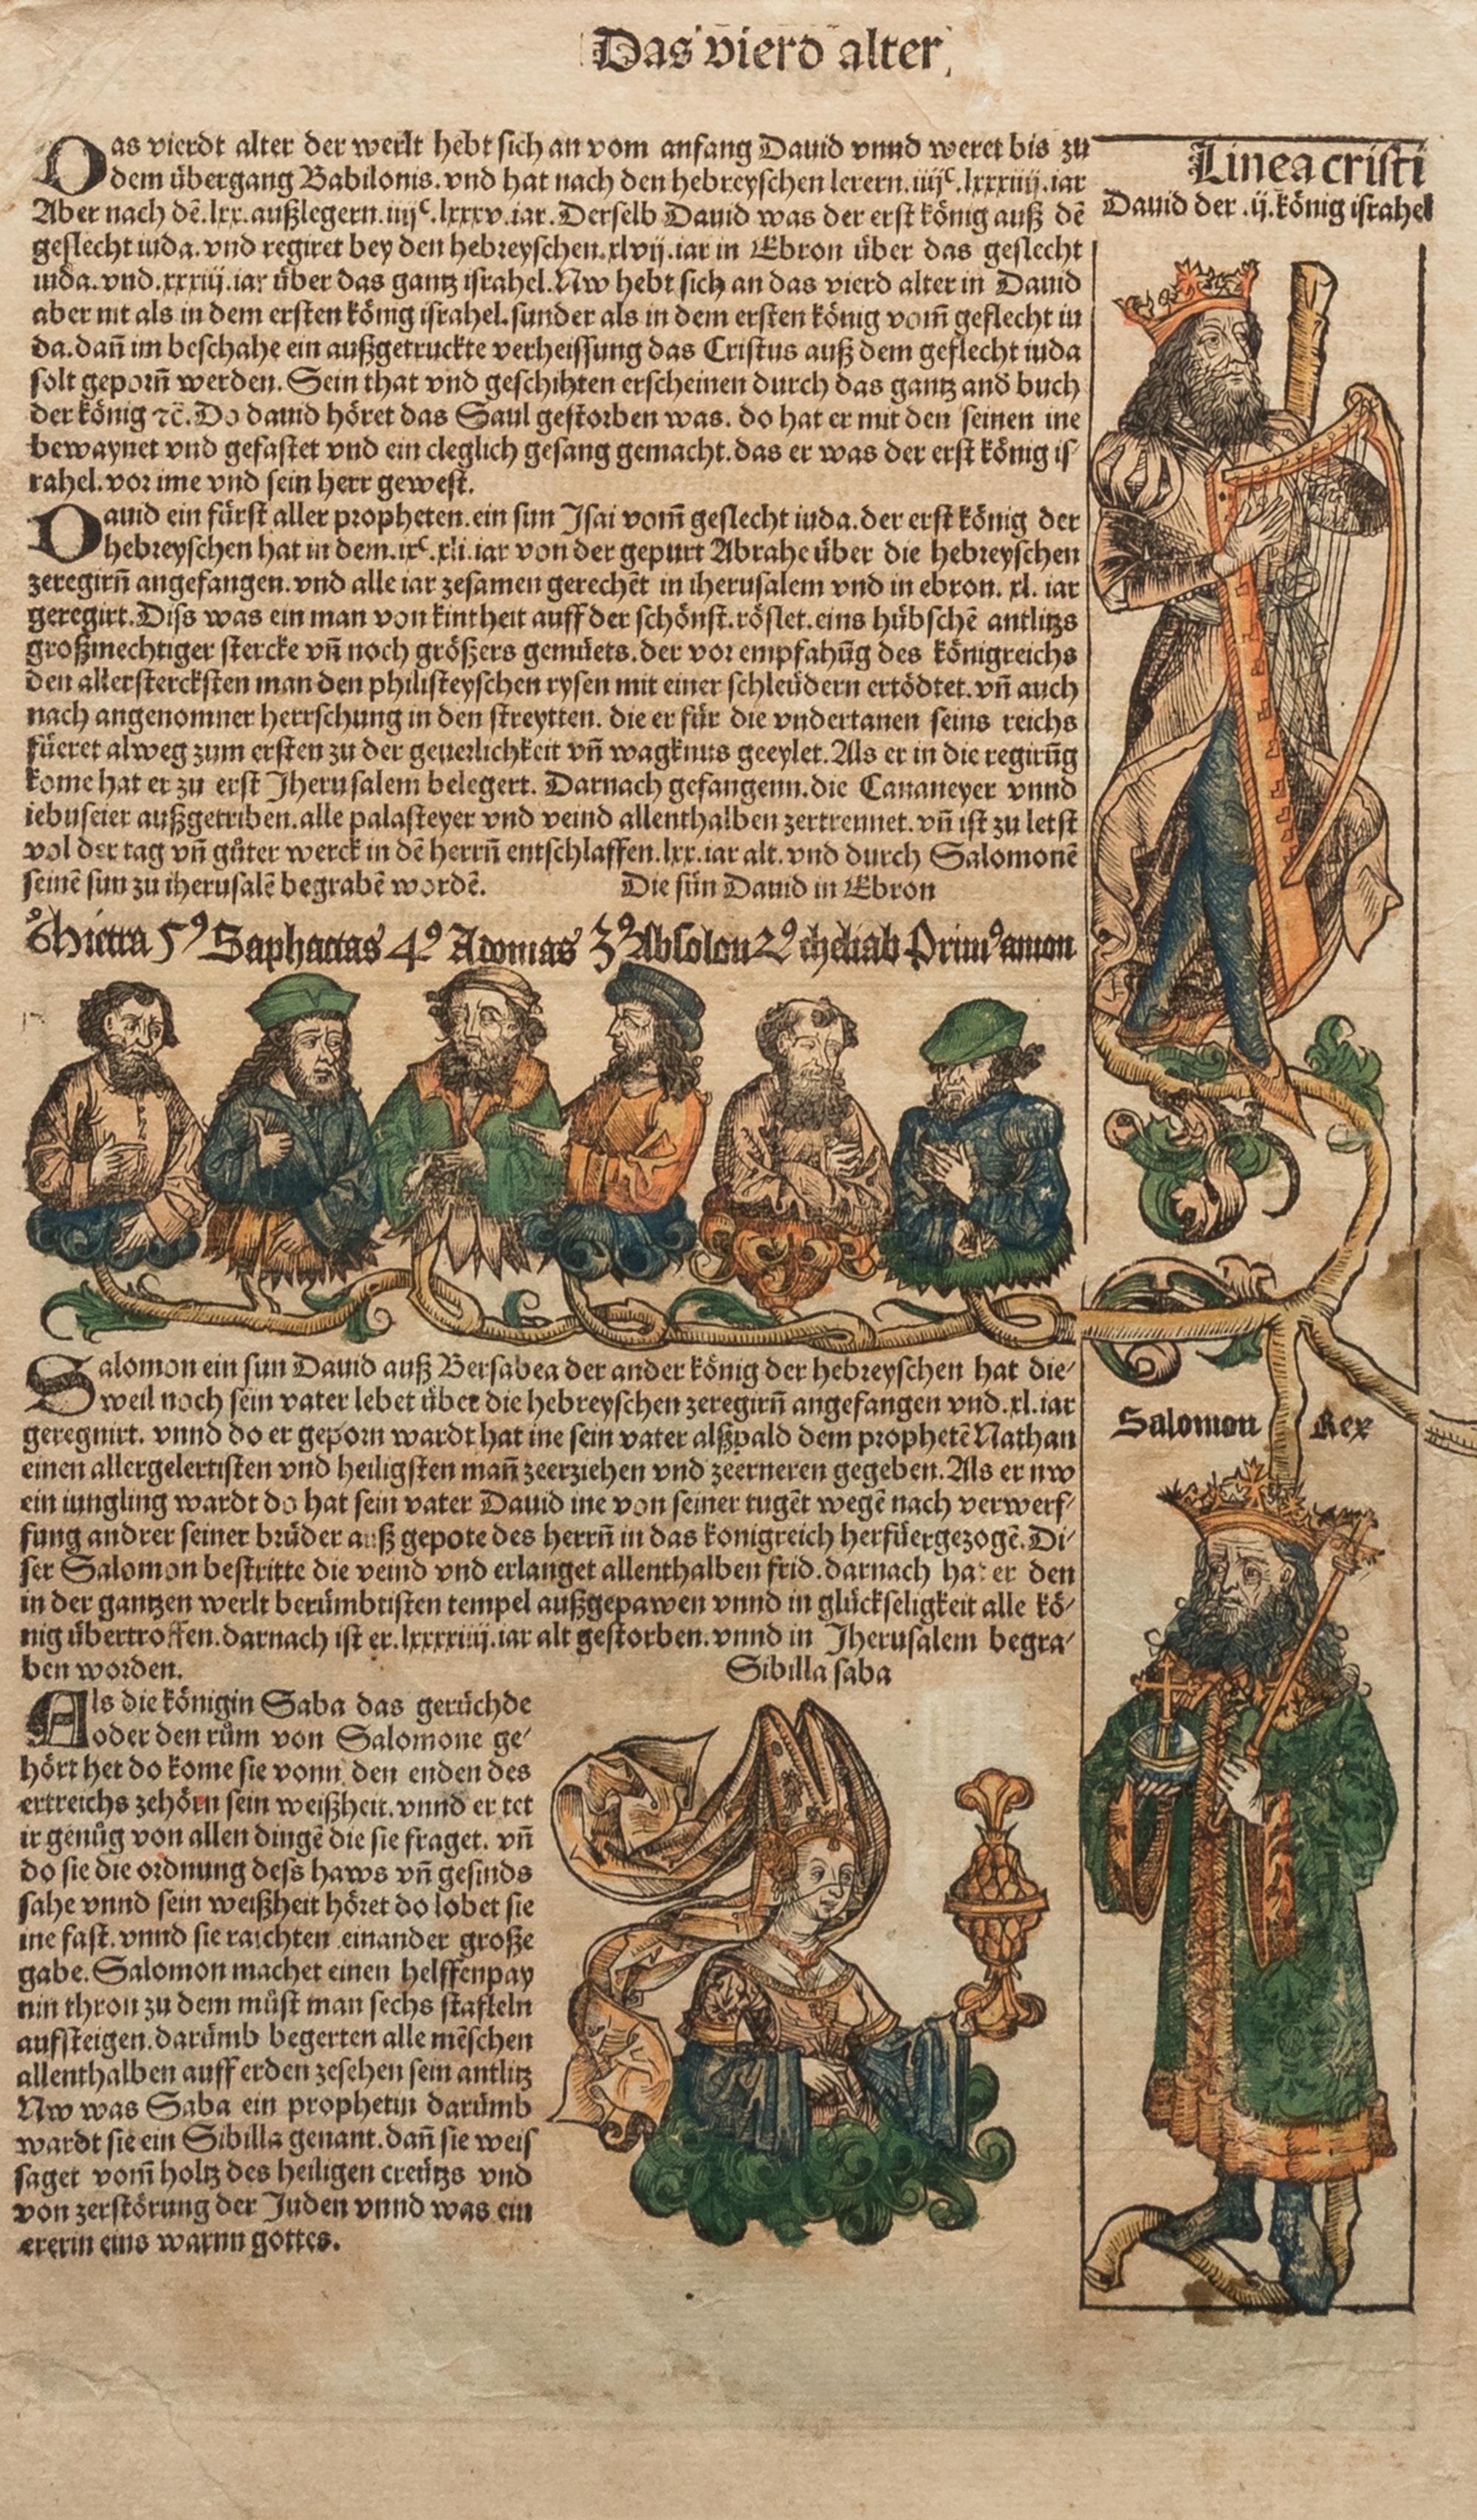 Das vierd alter
Das vierdt alter der werlt hebt sich an vom anfang Dauid vnnd weret bis zu
dem übergang Babilonis. vnd hat nach den hebreyschen lerern. iiijᶜ. lxxxiiij. iar
Aber nach dē. lxx. außlegern. iiijᶜ. lxxxv. iar. Derselb Dauid was der erst könig auß dē
geslecht iuda. vnd regiret bey den hebreyschen. xlvij. iar in Ebron über das geslecht
iuda. vnd. xxxiij. iar über das gantz israhel. Nw hebt sich an das vierd alter in Dauid
aber nit als in dem ersten könig israhel. sunder als in dem ersten könig vom̄ geslecht iu
da. dan̄ im beschahe ein außgetruckte verheissung das Cristus auß dem geslecht iuda
solt geporn̄ werden. Sein that vnd geschihten erscheinen durch das gantz and buch
der könig ⁊c̄. Do dauid höret das Saul gestorben was. do hat er mit den seinen ine
bewaynet vnd gefastet vnd ein cleglich gesang gemacht. das er was der erst könig is⸗
rahel. vor ime vnd sein herr gewest.
Dauid ein fürst aller propheten. ein sun Isai vom̄ geslecht iuda. der erst könig der
hebreyschen hat in dem. ixᶜ. xli. iar von der gepurt Abrahe über die hebreyschen
zeregirn̄ angefangen. vnd alle iar zesamen gerechēt in iherusalem vnd in ebron. xl. iar
geregirt. Diss was ein man von kintheit auff der schönst. röslet. eins hübschē antlitzs
großmechtiger stercke vn̄ noch größers gemüets. der vor empfahūg des königreichs
den allerstercksten man den philisteyschen rysen mit einer schleüdern ertödtet. vn̄ auch
nach angenomner herrschung in den streytten. die er für die vndertanen seins reichs
füeret alweg zum ersten zu der geuerlichkeit vn̄ wagknus geeylet. Als er in die regirūg
kome hat er zu erst Jherusalem belegert. Darnach gefangenn. die Cananeyer vnnd
iebuseier außgetriben. alle palasteyer vnd veind allenthalben zertrennet. vn̄ ist zu letst
vol der tag vn̄ gůter werck in dē herrn̄ entschlaffen. lxx. iar alt. vnd durch Salomonē
seinē sun zu iherusalē begrabē wordē.
Die sün Dauid in Ebron
5⁹ Saphacias 4⁹ Adonias 3⁹ Absolon 2⁹ cheliab Prim⁹ amon
Linea cristi
Dauid der .ij. könig israhel
Salomon ein sun Dauid auß Bersabea der ander könig der hebreyschen hat die⸗
weil noch sein vater lebet über die hebreyschen zeregirn̄ angefangen vnd. xl. iar
geregnirt. vnnd do er geporn wardt hat ine sein vater alßpald dem prophetē Nathan
einen allergelertisten vnd heiligsten man̄ zeerziehen vnd zeerneren gegeben. Als er nw
ein iungling wardt do hat sein vater Dauid ine von seiner tugēt wegē nach verwerf⸗
fung andrer seiner brüder auß gepote des herrn̄ in das königreich herfüergezogē. Di⸗
ser Salomon bestritte die veind vnd erlanget allenthalben frid. darnach hat er den
in der gantzen werlt berümbtisten tempel außgepawen vnnd in glückseligkeit alle kö⸗
nig übertroffen. darnach ist er. lxxxxiiij. iar alt gestorben. vnnd in Jherusalem begra⸗
ben worden.
Salomon Rex
Sibilla saba
Als die königin Saba das gerüchde
oder den rům von Salomone ge⸗
hört het do kome sie vonn den enden des
ertreichs zehörn sein weißheit. vnnd er tet
ir genůg von allen dingē die sie fraget. vn̄
do sie die ordnung dess haws vn̄ gesinds
sahe vnnd sein weißheit höret do lobet sie
ine fast. vnnd sie raichten einander große
gabe. Salomon machet einen helffenpay
nin thron zu dem můst man sechs staffeln
aufsteigen. darümb begerten alle mēschen
allenthalben auff erden zesehen sein antlitz
Nw was Saba ein prophetin darümb
wardt sie ein Sibilla genant. dan̄ sie weis
saget vom̄ holtz des heiligen creützs vnd
von zerstörung der Juden vnnd was ein
ererin eins warnn gottes.